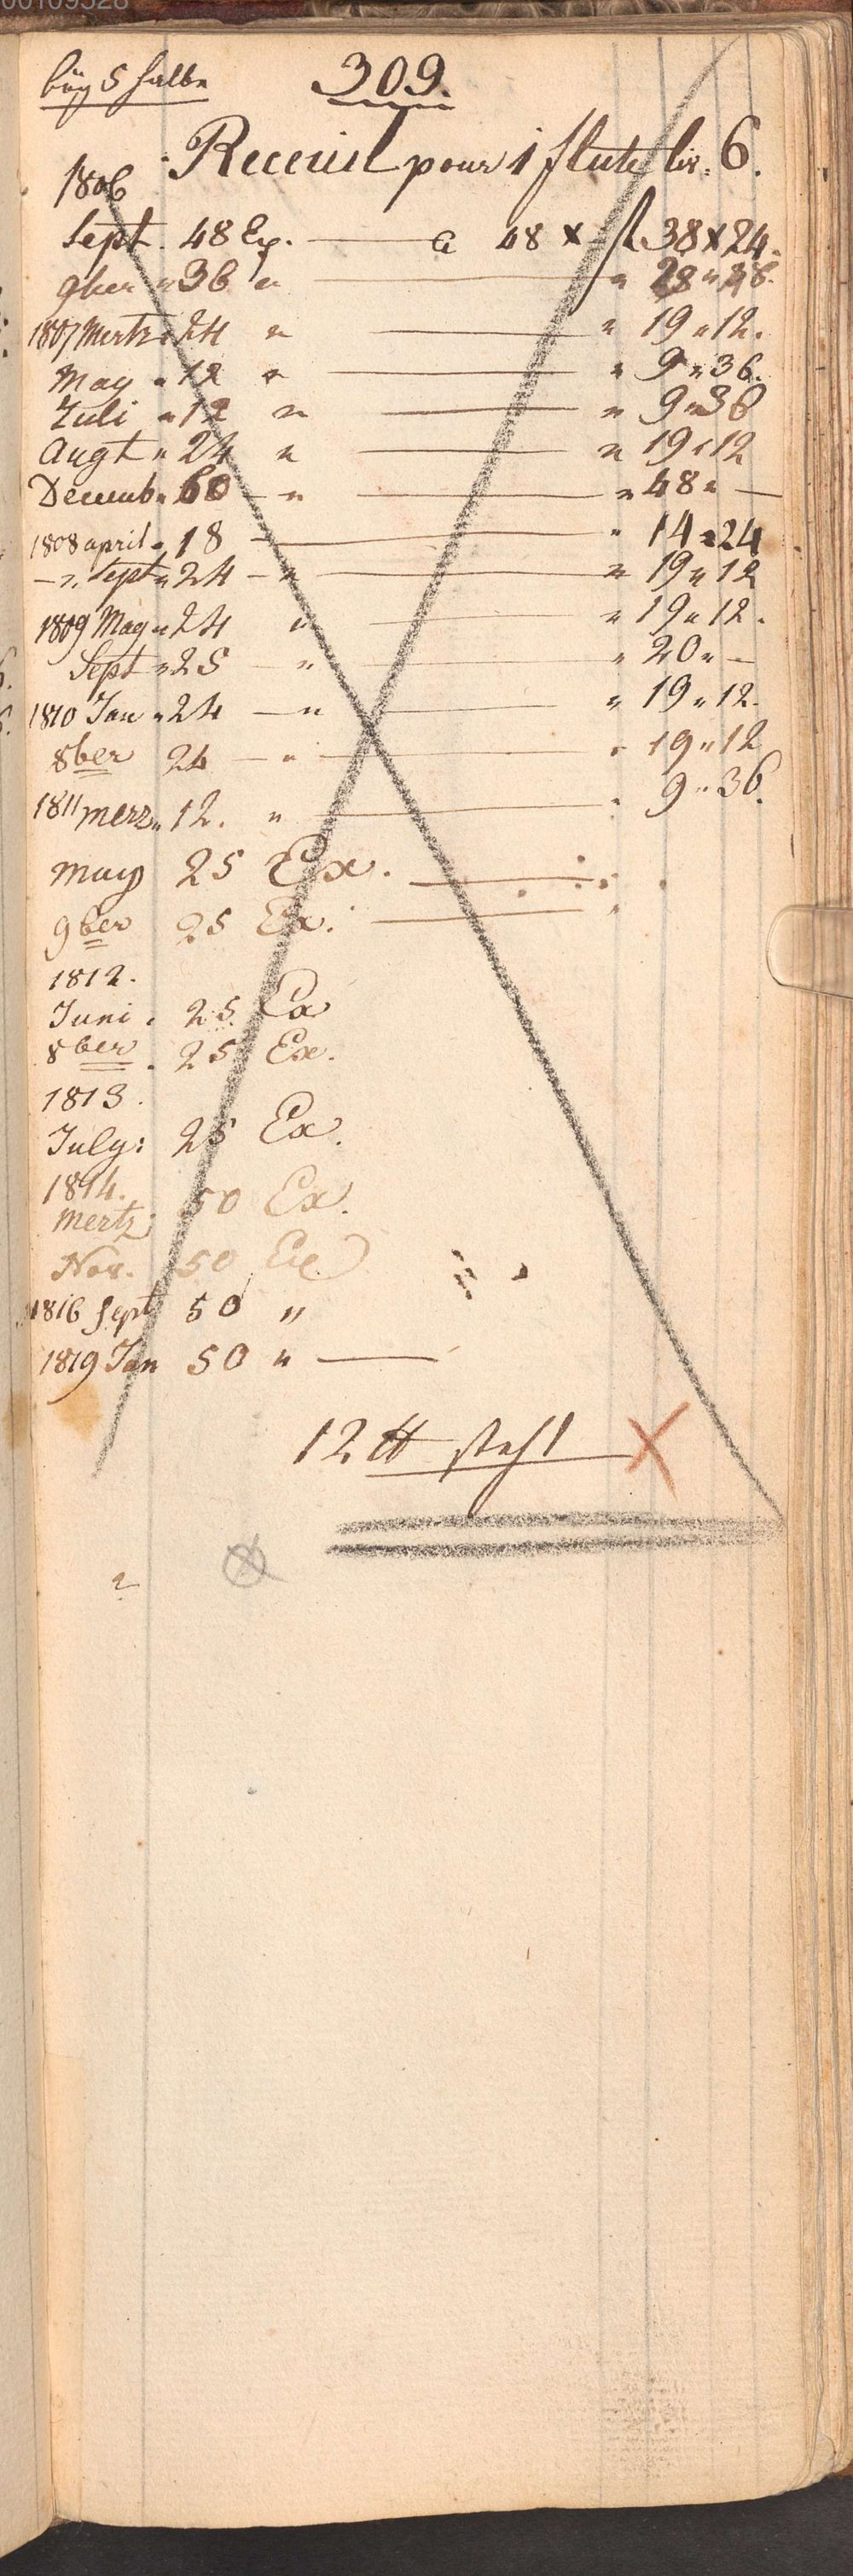 00109528
bög 5 halbe 309.
Receuil pour 1 flute liv. 6.
1806
Sept. 48 Ex. — a 48 x f 38 x 24.
9ber " 36 " — " 28 " 48.
1807 Mertz " 24 " — " 19 " 12.
May " 12 " — " 9 " 36.
Juli " 12 " — " 9 " 36
Augt " 24 " — " 19 " 12
Decemb " 60 — " — " 48 " —
1808 april " 18 — " 14 " 24
— " Sept " 24 — " — " 19 " 12
1809 May " 24 " — " 19 " 12.
Sept " 25 — " — " 20 " —
1810 Jan " 24 — " — " 19 " 12.
8ber 24 — " — " 19 " 12
1811 merz " 12. " — " 9 " 36.
may 25 Ex. —
9ber 25 Ex. —
1812.
Juni . 25. Ex
8ber . 25 Ex.
1813.
July: 25 Ex.
1814.
Mertz: 50 Ex.
Nov. 50 Ex
1816 Sept 50 "
1819 Jan 50 " —
12 ℔ stehl